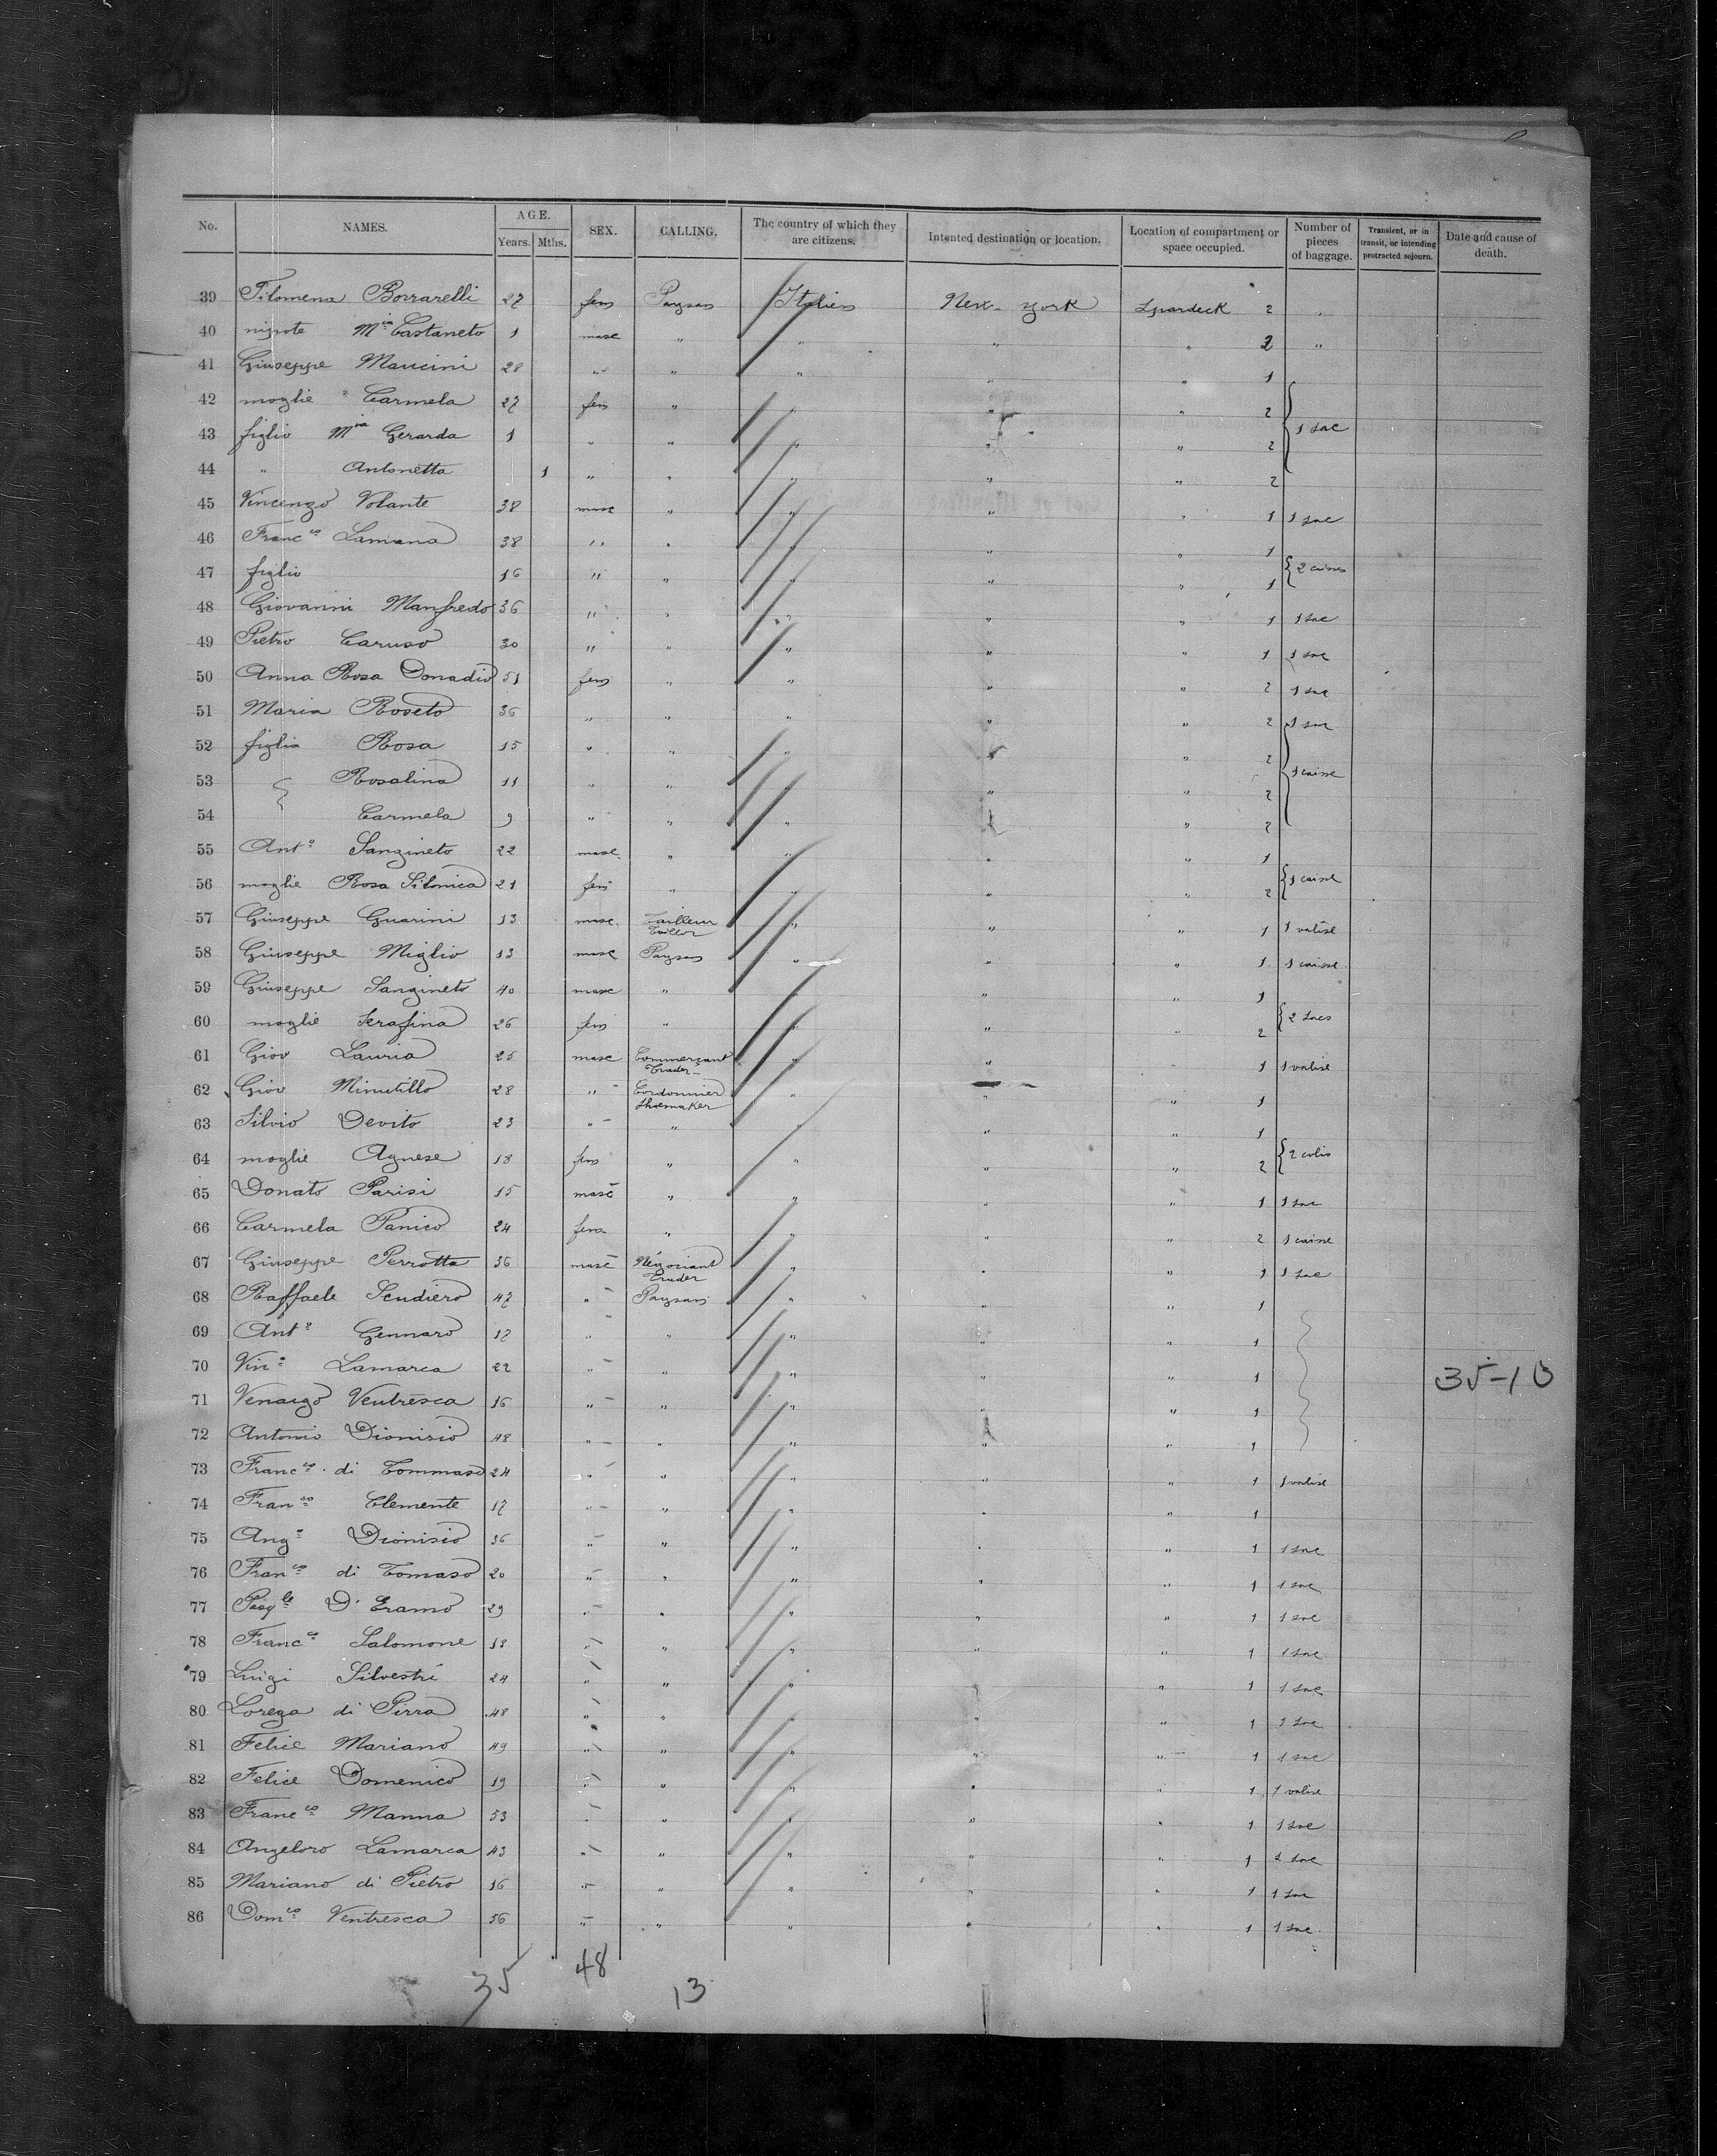 No. NAMES. AGE. Years. Mths. SEX. CALLING. The country of which they are citizens. Intented destination or location. Location of compartment or space occupied. Number of pieces of baggage. Transient, or in transit, or intending protracted sojourn. Date and cause of death.
39 Filomena Borrarelli 27 fem Paysan Italien New-york 2 "
40 nipote Mia Castaneto 1 masc " " " " 2 "
41 Giuseppe Mancini 28 " " " " " 1
42 moglie " Carmela 27 fem " " " " 2
43 figlio Mia Gerarda 1 " " " " " 2 1 sac
44 " Antonetta 1 " " " " " 2
45 Vincenzo Volante 38 masc " " " " 1 1 sac
46 Francco Lamana 38 " " " " " 1
47 figlio 16 " " " " " 1 2 caisses
48 Giovanni Manfredo 36 " " " " " 1 1 sac
49 Pietro Caruso 30 " " " " " 1 1 sac
50 Anna Rosa Donadio 51 fem " " " " 2 1 sac
51 Maria Roseto 36 " " " " " 2 1 sac
52 figlia Rosa 15 " " " " " 2
53 Rosalina 11 " " " " " 2 1 caisse
54 Carmela 9 " " " " " 2
55 Anto Sangineto 22 masc. " " " " 1
56 moglie Rosa Silonica 21 fem " " " " 2 1 caisse
57 Giuseppe Guarini 13 masc. Tailleur Tailor " " " 1 1 valise
58 Giuseppe Miglio 13 masc Paysan " " " 1 1 caisse
59 Giuseppe Sangineto 40 masc " " " " 1
60 moglie Serafina 26 fem " " " " 2 2 sacs
61 Giov Lauria 25 masc Commerçant Trader " " " 1 1 valise
62 Giov Minutillo 28 " Cordonnier Shoemaker " " " 1
63 Silvio Devito 23 " " " " " 1
64 moglie Agnese 18 fem " " " " 2 2 colis
65 Donato Parisi 15 masc " " " " 1 1 sac
66 Carmela Panico 24 fem " " " " 2 1 caisse
67 Giuseppe Perrotta 36 masc Négociant Trader " " " 1 1 sac
68 Raffaele Scudiero 47 " Paysan " " " 1
69 Anto Gennaro 17 " " " " " 1
70 Vino Lamarca 22 " " " " " 1 35-13
71 Ventresca 16 " " " " " 1
72 Antonio Dionisio 48 " " " " " 1
73 Francco di Tommaso 24 " " " " " 1 1 valise
74 Franco Clemente 17 " " " " " 1
75 Ango Dionisio 36 " " " " " 1 1 sac
76 Franco di Tomaso 20 " " " " " 1 1 sac
77 Pasqle D'Eramo 29 " " " " " 1 1 sac
78 Francco Salomone " " " " " 1 1 sac
79 Luigi Silvestri 24 " " " " " 1 1 sac
80 di Pirra 48 " " " " " 1 1 sac
81 Felice Mariano 49 " " " " " 1 1 sac
82 Felice Domenico 19 " " " " " 1 1 valise
83 Francco Manna 53 " " " " " 1 1 sac
84 Angeloro Lamarca 43 " " " " " 1 1 sac
85 Mariano di Pietro 16 " " " " " 1 1 sac
86 Domco Ventresca 36 " " " " " 1 1 sac
35 48 13